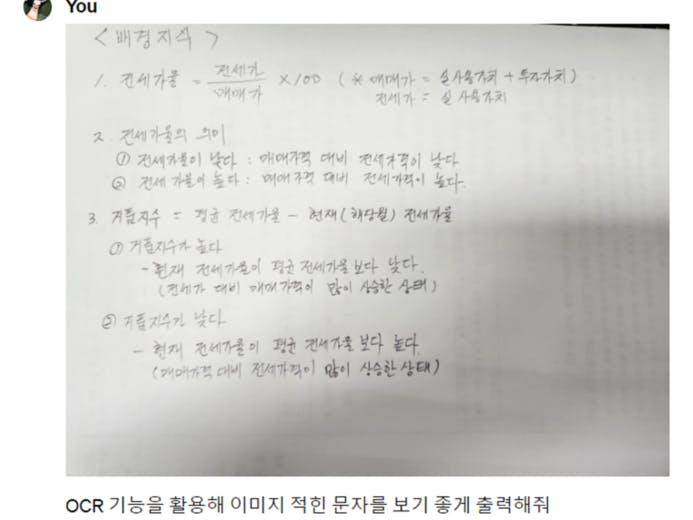 You
< 배경지식 >
1. 전세가율 = 전세가 / 매매가 ×100 ( * 매매가 = 실사용가치 + 투자가치 )
전세가 = 실사용가치
2. 전세가율의 의미
① 전세가율이 낮다 : 매매가격 대비 전세가격이 낮다
② 전세가율이 높다 : 매매가격 대비 전세가격이 높다.
3. 거품지수 = 평균 전세가율 - 현재(해당월) 전세가율
① 거품지수가 높다
- 현재 전세가율이 평균 전세가율보다 낮다.
(전세가 대비 매매가격이 많이 상승한 상태)
② 거품지수가 낮다
- 현재 전세가율이 평균 전세가율보다 높다.
(매매가격 대비 전세가격이 많이 상승한 상태)
OCR 기능을 활용해 이미지 적힌 문자를 보기 좋게 출력해줘